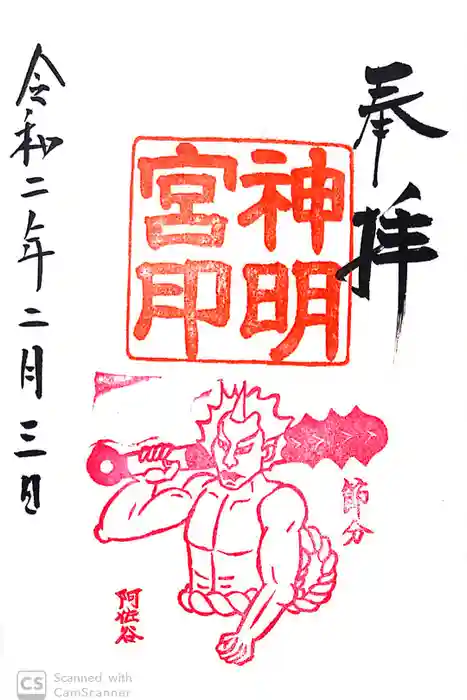 奉拝
神明
宮印
節分
阿佐谷
令和二年二月三日
CS Scanned with
CamScanner